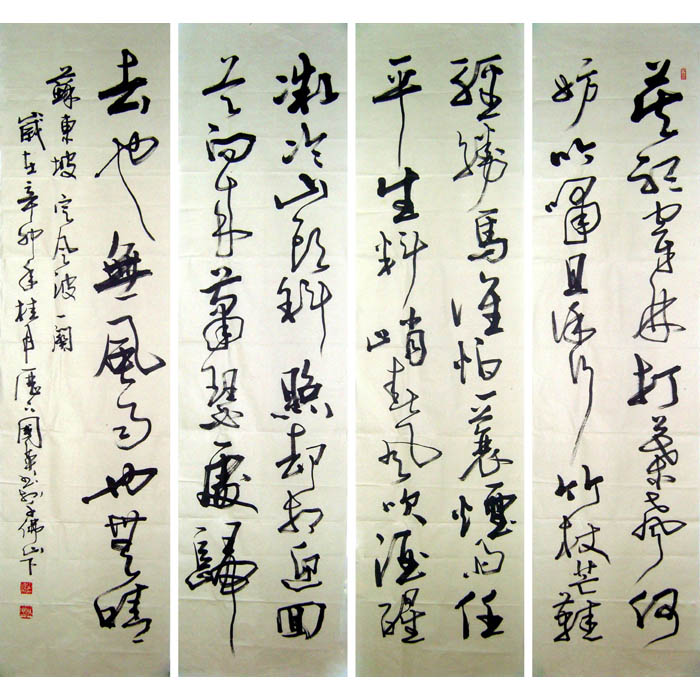 莫聽穿林打葉聲何
妨吟嘯且徐行竹杖芒鞋
輕勝馬誰怕一蓑煙雨任
平生料峭春風吹酒醒
微冷山頭斜照却相迎回
首向來蕭瑟處歸
去也無風雨也無晴
蘇東坡定風波一闋
歲在辛卯年桂月歷下國東書於千佛山下